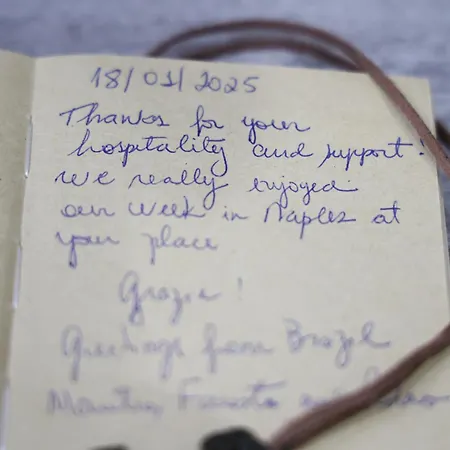 18/01/2025
Thanks for your
hospitality and support!
We really enjoyed
our week in Naples at
your place
Grazie!
Greetings from Brazil